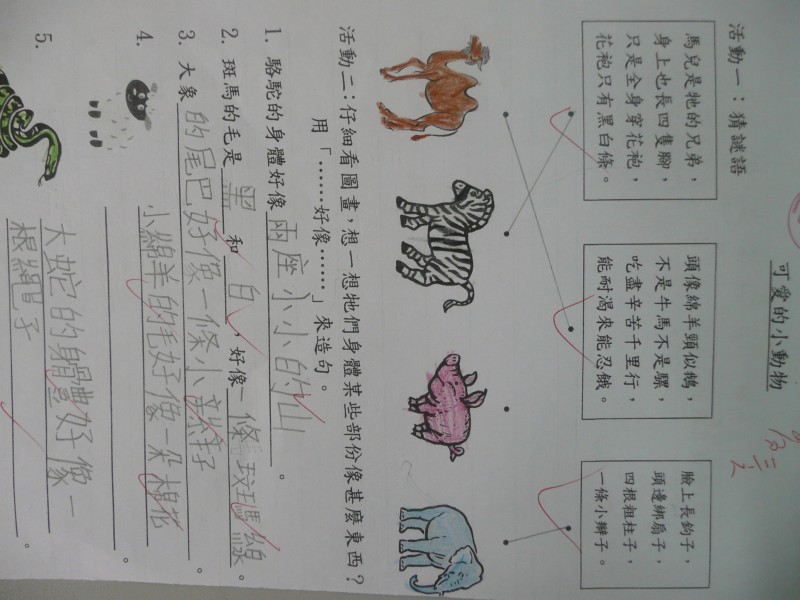 可愛的小動物
活動一：猜謎語
馬兒是牠的兄弟，
身上也長四隻腳，
只是全身穿花袍，
花袍只有黑白條。
頭像綿羊頸似鵝，
不是牛馬不是騾，
吃盡辛苦千里行，
能耐渴來能忍餓。
臉上長鉤子，
頭邊綁扇子，
四根粗柱子，
一條小辮子。
活動二：仔細看圖畫，想一想牠們身體某些部份像甚麼東西？
用「……好像……」來造句。
1. 駱駝的身體好像兩座小小的山。
2. 斑馬的毛是黑和白，好像一條斑馬線。
3. 大象的尾巴好像一條小辮子。
4. 小綿羊的毛好像一朵棉花。
5. 大蛇的身體好像一
根繩子。